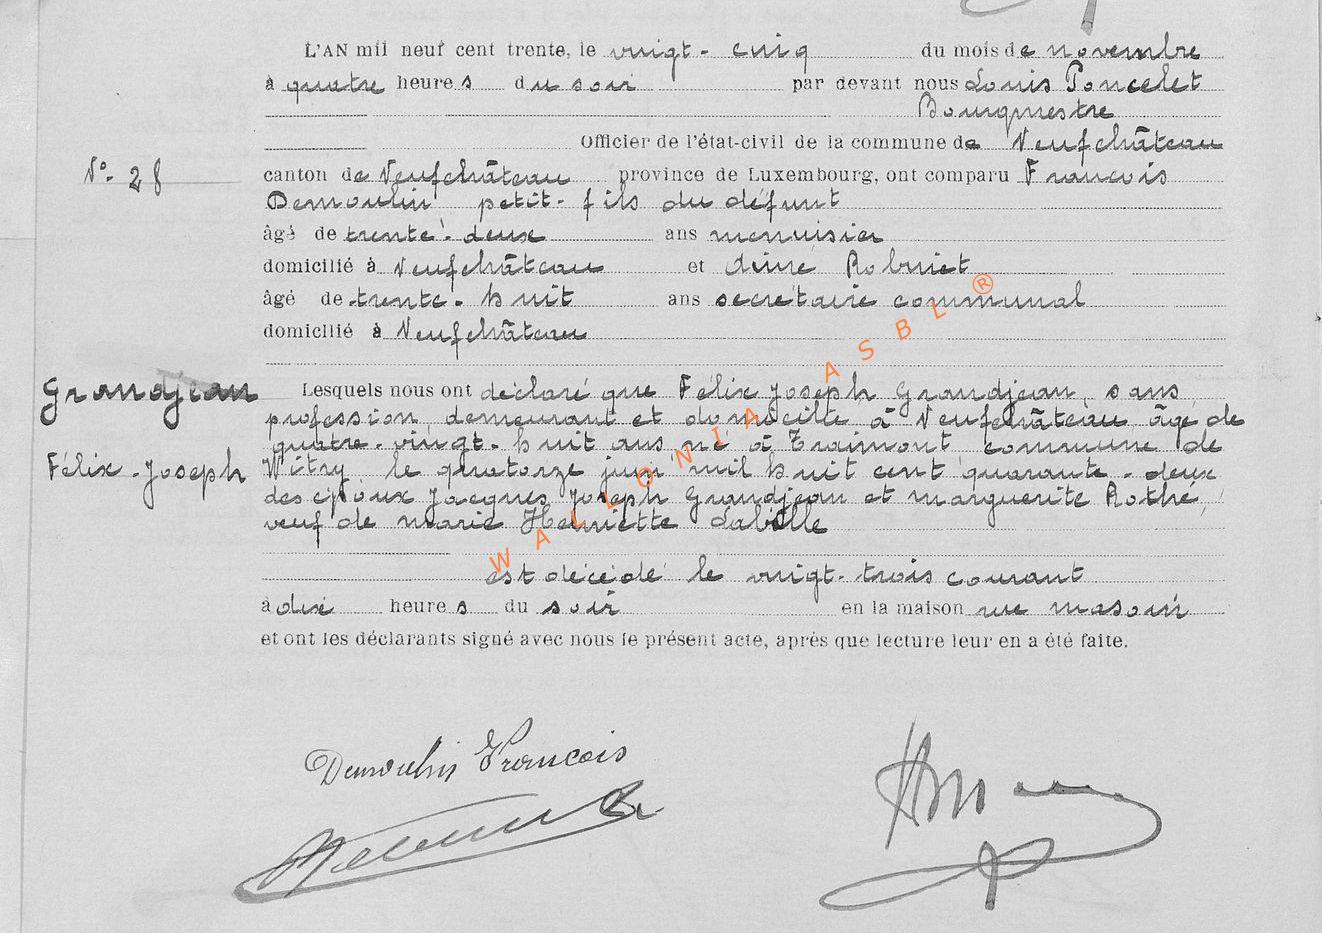 L'AN mil neuf cent trente, le vingt-cinq du mois de novembre
à quatre heures du soir par devant nous Louis Poncelet
Bourgmestre
Officier de l'état-civil de la commune de Neufchâteau
N° 28 canton de Neufchâteau province de Luxembourg, ont comparu Francois
Demoulin petit-fils du défunt
âgé de trente-deux ans menuisier
domicilié à Neufchâteau et Aimé
âgé de trente-huit ans secrétaire communal
domicilié à Neufchâteau
Grandjean Lesquels nous ont déclaré que Félix Joseph Grandjean, sans
profession, demeurant et domicilié à Neufchâteau âgé de
quatre-vingt-huit ans né à Traimont commune de
Félix-Joseph Witry le quatorze juin mil huit cent quarante-deux
des époux Jacques Joseph Grandjean et marguerite Rothe,
veuf de marie Henriette Labille
est décédé le vingt-trois courant
à dix heures du soir en la maison rue
et ont les déclarants signé avec nous le présent acte, après que lecture leur en a été faite.
Demoulin Francois
WALLONIA ASBL ®